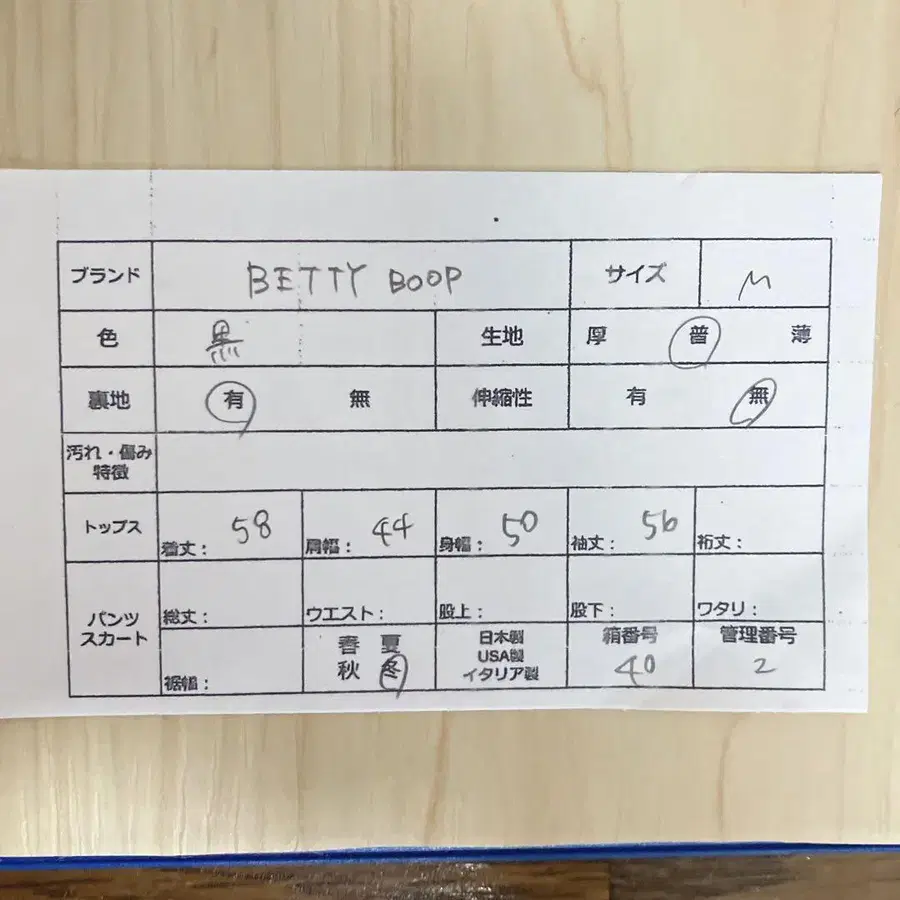 ブランド BETTY BOOP サイズ M
色 黒 生地 厚 普 薄
裏地 有 無 伸縮性 有 無
汚れ・傷み
特徴
トップス 着丈: 58 肩幅: 44 身幅: 50 袖丈: 56 裄丈:
パンツ
スカート
総丈: ウエスト: 股上: 股下: ワタリ:
裾幅:
春 夏
秋 冬
日本製
USA製
イタリア製
箱番号
40
管理番号
2